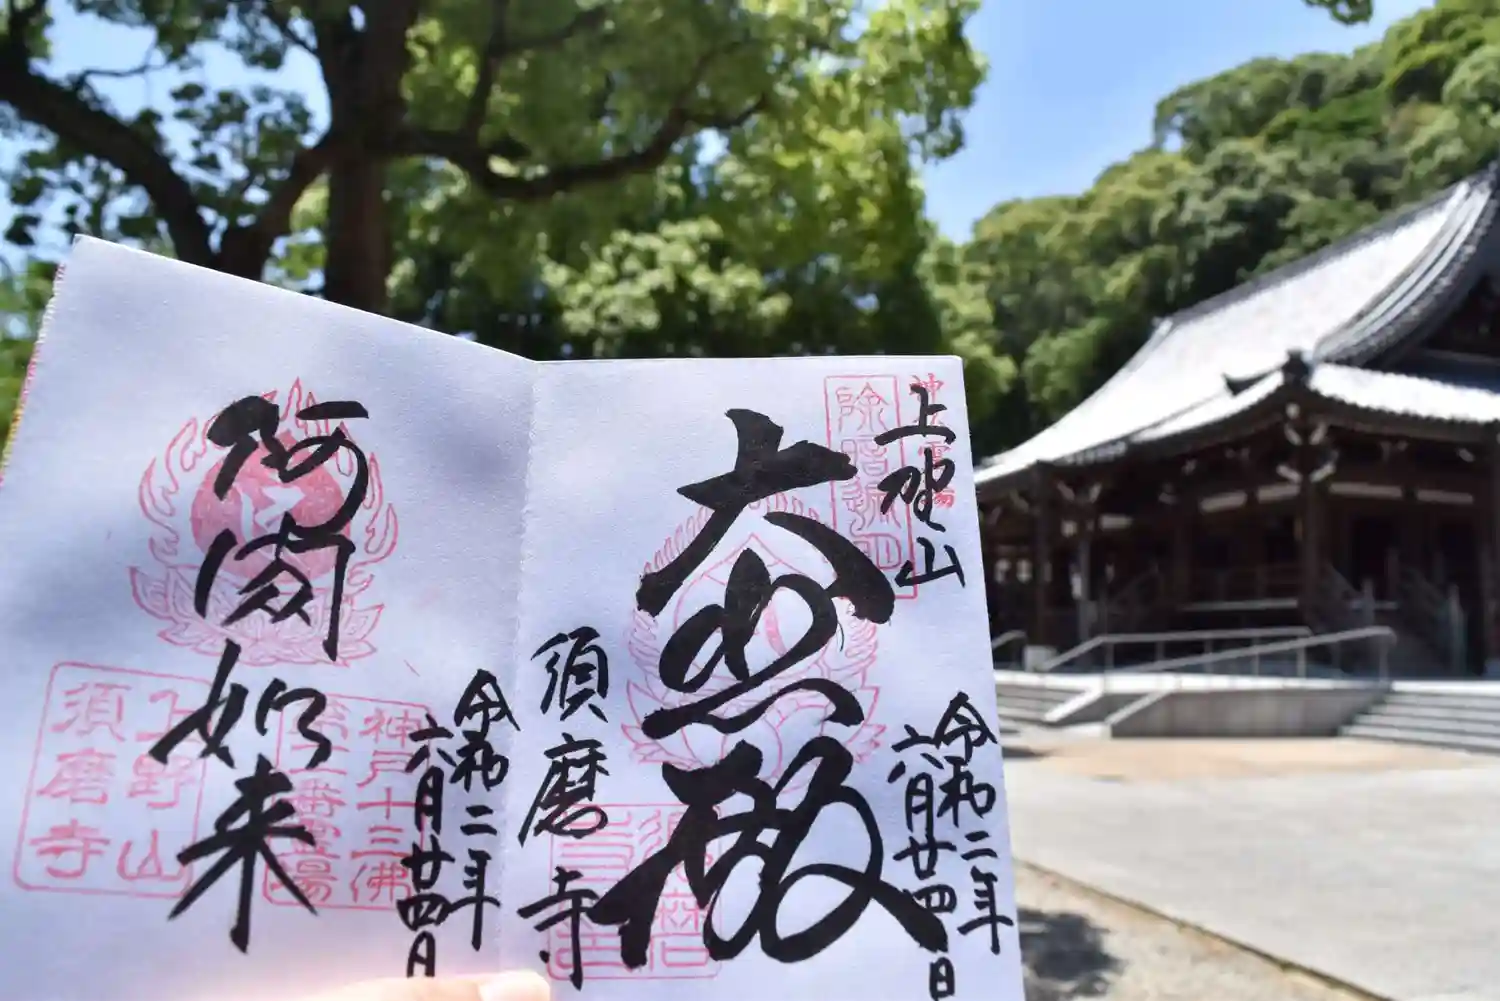 上野山
大悲殿
須磨寺
令和二年
六月廿四日
令和二年
六月廿四日
阿閦如来
神戸十三佛
第十二番霊場
上野山
須磨寺